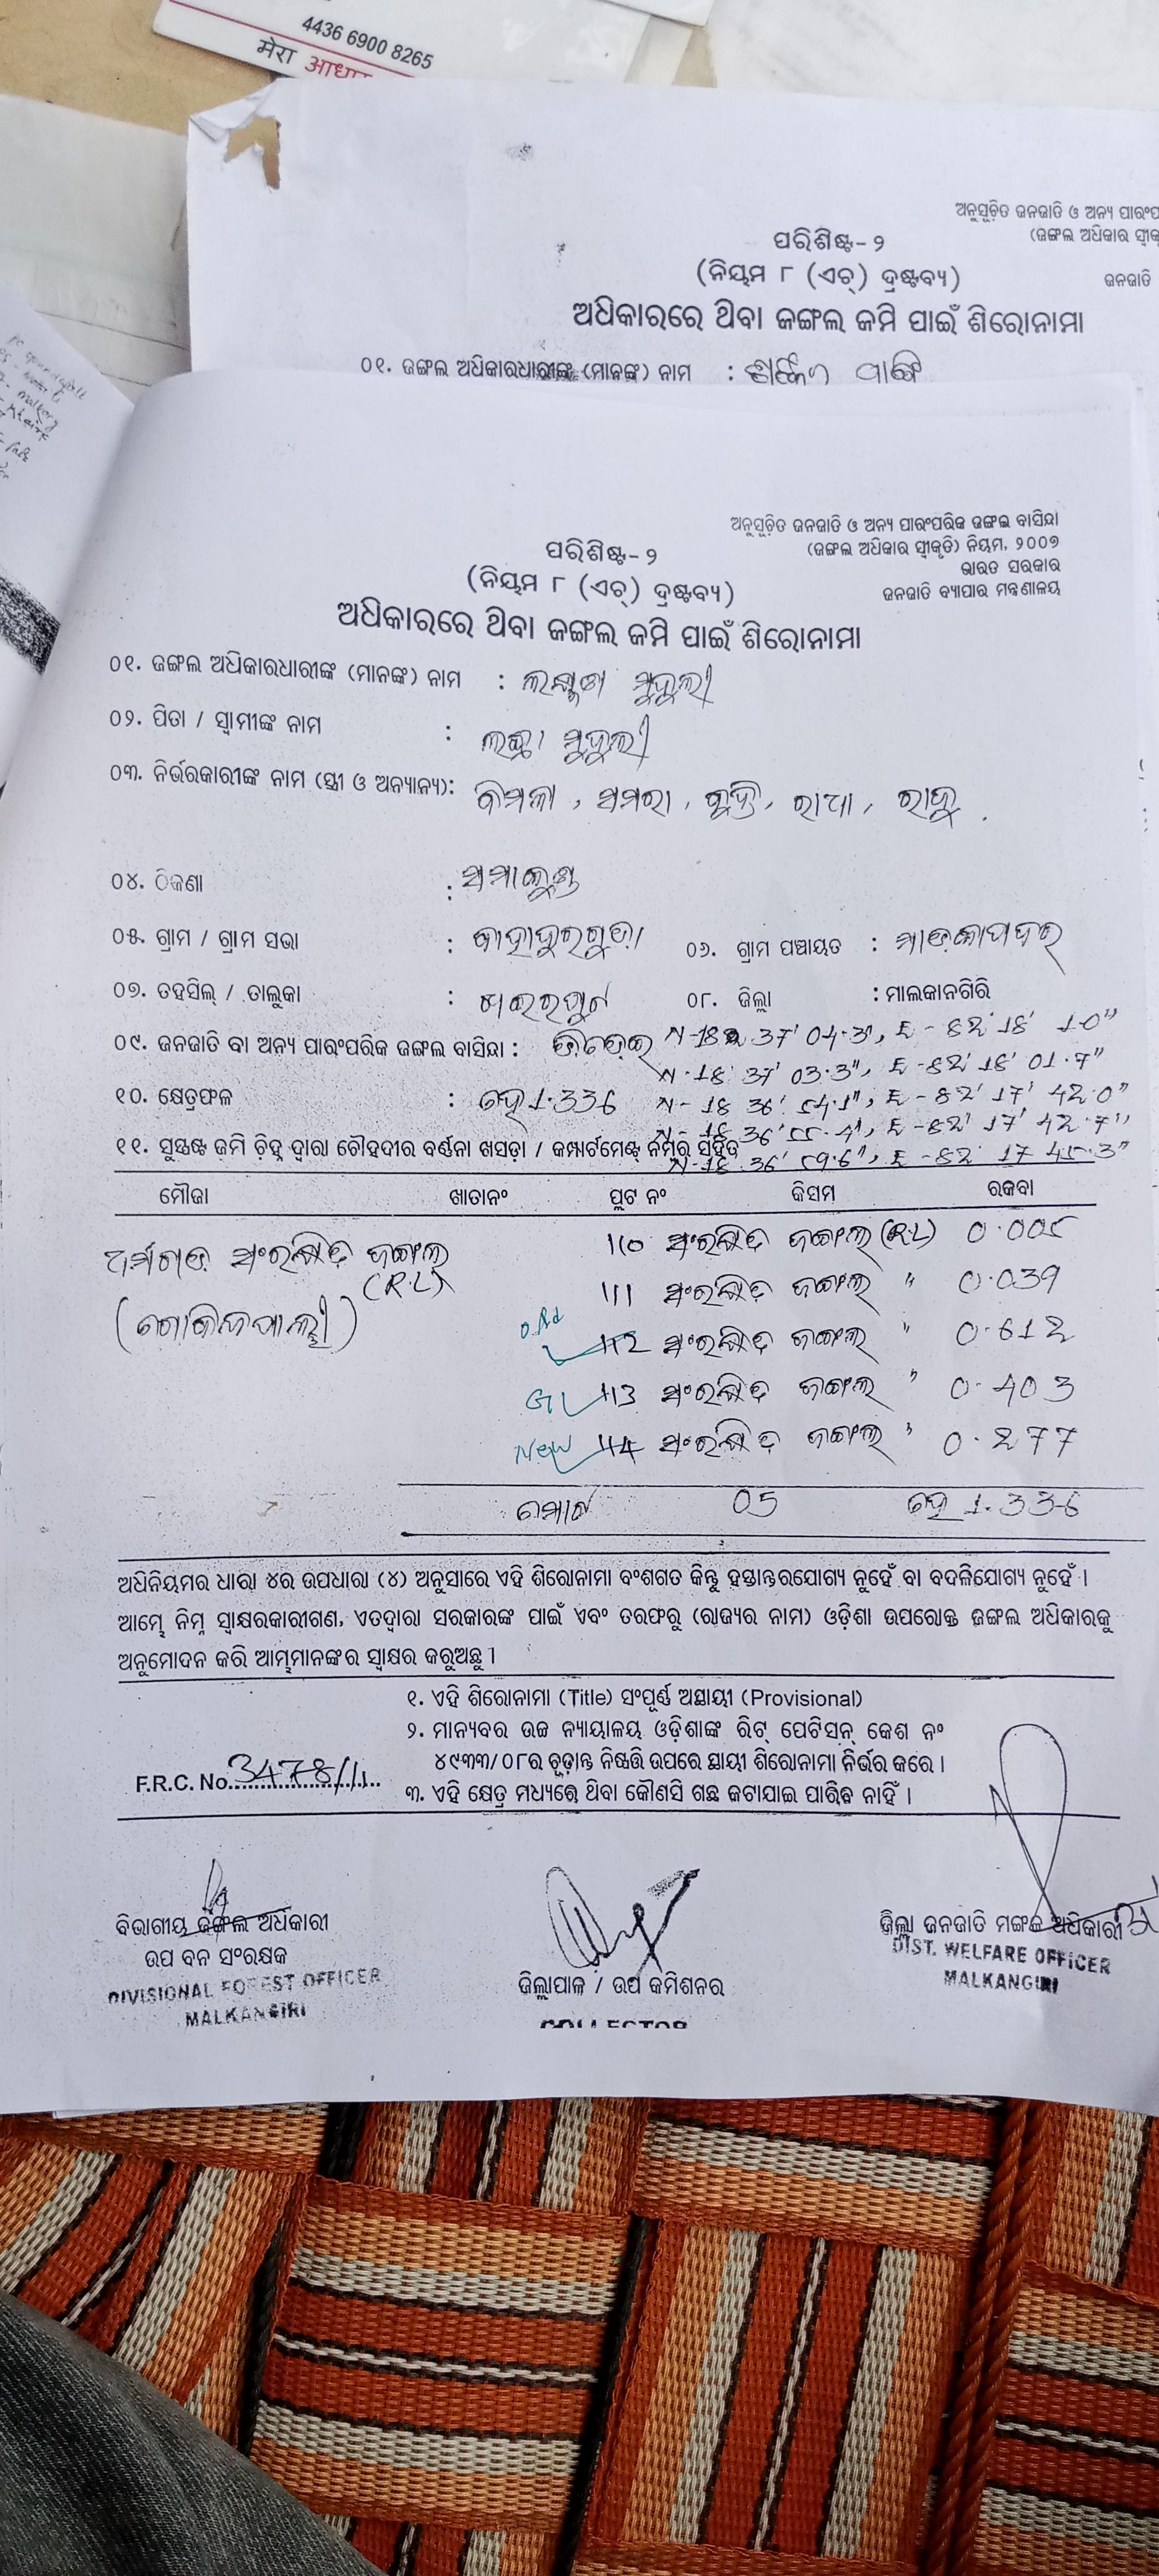 4436 6900 8265
मेरा आधार
ଅନୁସୂଚିତ ଜନଜାତି ଓ ଅନ୍ୟ ପାରଂପ
(ଜଙ୍ଗଲ ଅଧିକାର ସ୍ଵୀକୃ
ପରିଶିଷ୍ଟ-୨
(ନିୟମ ୮ (ଏଚ୍) ଦ୍ରଷ୍ଟବ୍ୟ)
ଜନଜାତି
ଅଧିକାରରେ ଥିବା ଜଙ୍ଗଲ ଜମି ପାଇଁ ଶିରୋନାମା
୦୧. ଜଙ୍ଗଲ ଅଧିକାରଧାରୀଙ୍କ (ମାନଙ୍କ) ନାମ :
ଅନୁସୂଚିତ ଜନଜାତି ଓ ଅନ୍ୟ ପାରଂପରିକ ଜଙ୍ଗଲ ବାସିନ୍ଦା
(ଜଙ୍ଗଲ ଅଧିକାର ସ୍ଵୀକୃତି) ନିୟମ, ୨୦୦୭
ଭାରତ ସରକାର
ଜନଜାତି ବ୍ୟାପାର ମନ୍ତ୍ରଣାଳୟ
ପରିଶିଷ୍ଟ-୨
(ନିୟମ ୮ (ଏଚ୍) ଦ୍ରଷ୍ଟବ୍ୟ)
ଅଧିକାରରେ ଥିବା ଜଙ୍ଗଲ ଜମି ପାଇଁ ଶିରୋନାମା
୦୧. ଜଙ୍ଗଲ ଅଧିକାରଧାରୀଙ୍କ (ମାନଙ୍କ) ନାମ : ଲକ୍ଷ୍ମଣ ମୁଦୁଲୀ
୦୨. ପିତା / ସ୍ଵାମୀଙ୍କ ନାମ : ଲଚ୍ଛା ମୁଦୁଲୀ
୦୩. ନିର୍ଭରକାରୀଙ୍କ ନାମ (ସ୍ତ୍ରୀ ଓ ଅନ୍ୟାନ୍ୟ): ବିମଳା, ସମରା, ବୁଦ୍ରି, ରାଧା, ରାଜୁ
୦୪. ଠିକଣା : ସମାକୁଣ୍ଡ
୦୫. ଗ୍ରାମ / ଗ୍ରାମ ସଭା : ବାହାଦୁରଗୁଡ଼ା ୦୬. ଗ୍ରାମ ପଞ୍ଚାୟତ : ମାଡ଼କାପଦର
୦୭. ତହସିଲ୍ / ତାଲୁକା : ଖଇରପୁଟ ୦୮. ଜିଲ୍ଲା : ମାଲକାନଗିରି
୦୯. ଜନଜାତି ବା ଅନ୍ୟ ପାରଂପରିକ ଜଙ୍ଗଲ ବାସିନ୍ଦା : N-18 37' 04.3", E-82' 18' 1.0"
N-18' 37' 03.3", E-82' 18' 01.7"
୧୦. କ୍ଷେତ୍ରଫଳ : ହେ 1.336 N-18 36' 54.1", E-82' 17' 42.0"
N-18 36' 55.4", E-82' 17' 42.7"
୧୧. ସୁସ୍ପଷ୍ଟ ଜମି ଚିହ୍ନ ଦ୍ଵାରା ଚୌହଦୀର ବର୍ଣନା ଖସଡ଼ା / କମ୍ପାର୍ଟମେଣ୍ଟ ନମ୍ବର ସହିତ
N-18 36' 59.6", E-82' 17 45.3"
ମୌଜା ଖାତାନଂ ପ୍ଲଟ ନଂ କିସମ ରକବା
ସଂରକ୍ଷିତ ଜଙ୍ଗଲ 110 ସଂରକ୍ଷିତ ଜଙ୍ଗଲ (R.L) 0.005
(R.L) 111 ସଂରକ୍ଷିତ ଜଙ୍ଗଲ " 0.039
(ଗୋବିନ୍ଦପାଲ୍ଲୀ) old 112 ସଂରକ୍ଷିତ ଜଙ୍ଗଲ " 0.612
113 ସଂରକ୍ଷିତ ଜଙ୍ଗଲ " 0.403
New 114 ସଂରକ୍ଷିତ ଜଙ୍ଗଲ " 0.277
ମୋଟ 05 ହେ 1.336
ଅଧିନିୟମର ଧାରା ୪ର ଉପଧାରା (୪) ଅନୁସାରେ ଏହି ଶିରୋନାମା ବଂଶଗତ କିନ୍ତୁ ହସ୍ତାନ୍ତରଯୋଗ୍ୟ ନୁହେଁ ବା ବଦଳିଯୋଗ୍ୟ ନୁହେଁ ।
ଆମ୍ଭେ ନିମ୍ନ ସ୍ଵାକ୍ଷରକାରୀଗଣ, ଏତଦ୍ଵାରା ସରକାରଙ୍କ ପାଇଁ ଏବଂ ତରଫରୁ (ରାଜ୍ୟର ନାମ) ଓଡ଼ିଶା ଉପରୋକ୍ତ ଜଙ୍ଗଲ ଅଧିକାରକୁ
ଅନୁମୋଦନ କରି ଆମ୍ଭମାନଙ୍କର ସ୍ଵାକ୍ଷର କରୁଅଛୁ ।
୧. ଏହି ଶିରୋନାମା (Title) ସଂପୂର୍ଣ୍ଣ ଅସ୍ଥାୟୀ (Provisional)
୨. ମାନ୍ୟବର ଉଚ୍ଚ ନ୍ୟାୟାଳୟ ଓଡ଼ିଶାଙ୍କ ରିଟ୍ ପେଟିସନ୍ କେଶ ନଂ
୪୯୩୩/୦୮ର ଚୂଡ଼ାନ୍ତ ନିଷ୍ପତ୍ତି ଉପରେ ସ୍ଥାୟୀ ଶିରୋନାମା ନିର୍ଭର କରେ ।
F.R.C. No. 3478/11
୩. ଏହି କ୍ଷେତ୍ର ମଧ୍ୟସ୍ତେ ଥିବା କୌଣସି ଗଛ କଟାଯାଇ ପାରିବ ନାହିଁ ।
ବିଭାଗୀୟ ଜଙ୍ଗଲ ଅଧିକାରୀ
ଉପ ବନ ସଂରକ୍ଷକ
DIVISIONAL FOREST OFFICER
MALKANGIRI
ଜିଲ୍ଲାପାଳ / ଉପ କମିଶନର
COLLECTOR
ଜିଲ୍ଲା ଜନଜାତି ମଙ୍ଗଳ ଅଧିକାରୀ
DIST. WELFARE OFFICER
MALKANGIRI